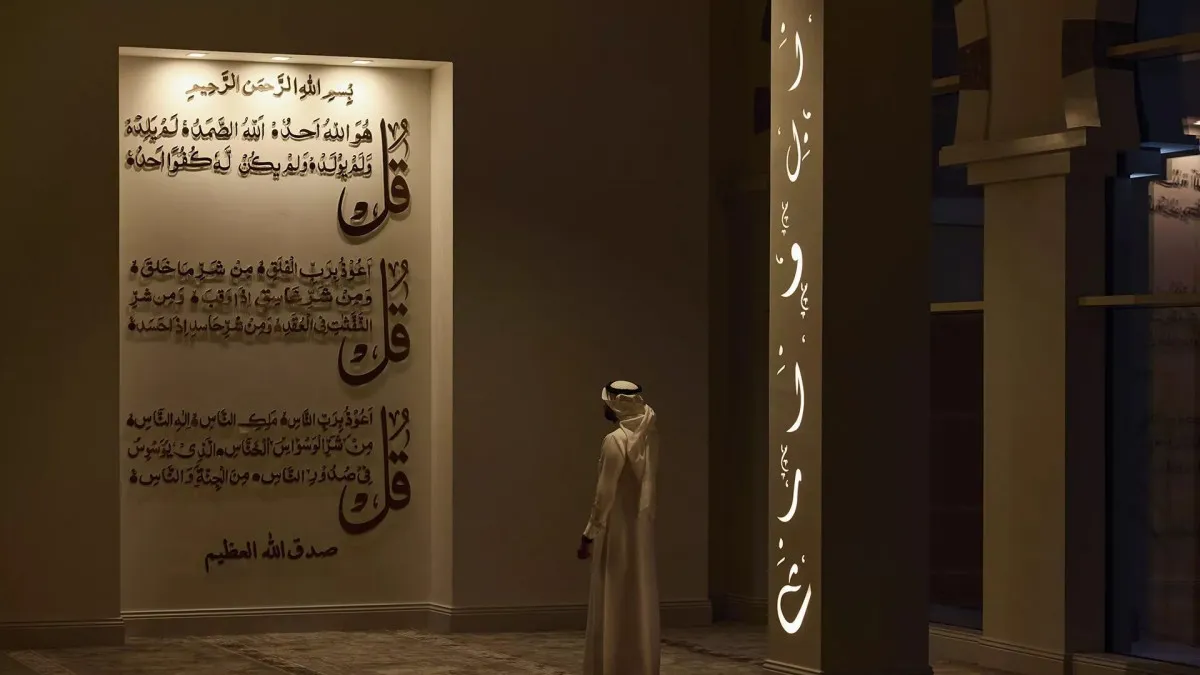 بِسمِ اللهِ الرَّحمَنِ الرَّحِيمِ
قُلْ هُوَ اللهُ اَحَدٌ ۝ اَللهُ الصَّمَدُ ۝ لَمْ يَلِدْ ۝
وَلَمْ يُوْلَدْ ۝ وَلَمْ يَكُنْ لَّهٗ كُفُوًا اَحَدٌ ۝
قُلْ اَعُوْذُ بِرَبِّ الْفَلَقِ ۝ مِنْ شَرِّ مَا خَلَقَ ۝
وَمِنْ شَرِّ غَاسِقٍ اِذَا وَقَبَ ۝ وَمِن شَرِّ
النَّفّٰثٰتِ فِي الْعُقَدِ ۝ وَمِنْ شَرِّ حَاسِدٍ اِذَا حَسَدَ ۝
قُلْ اَعُوْذُ بِرَبِّ النَّاسِ ۝ مَلِكِ النَّاسِ ۝ اِلٰهِ النَّاسِ ۝
مِنْ شَرِّ الْوَسْوَاسِ الْخَنَّاسِ ۝ الَّذِيْ يُوَسْوِسُ
فِيْ صُدُوْرِ النَّاسِ ۝ مِنَ الْجِنَّةِ وَالنَّاسِ ۝
صدق الله العظيم
الوارث